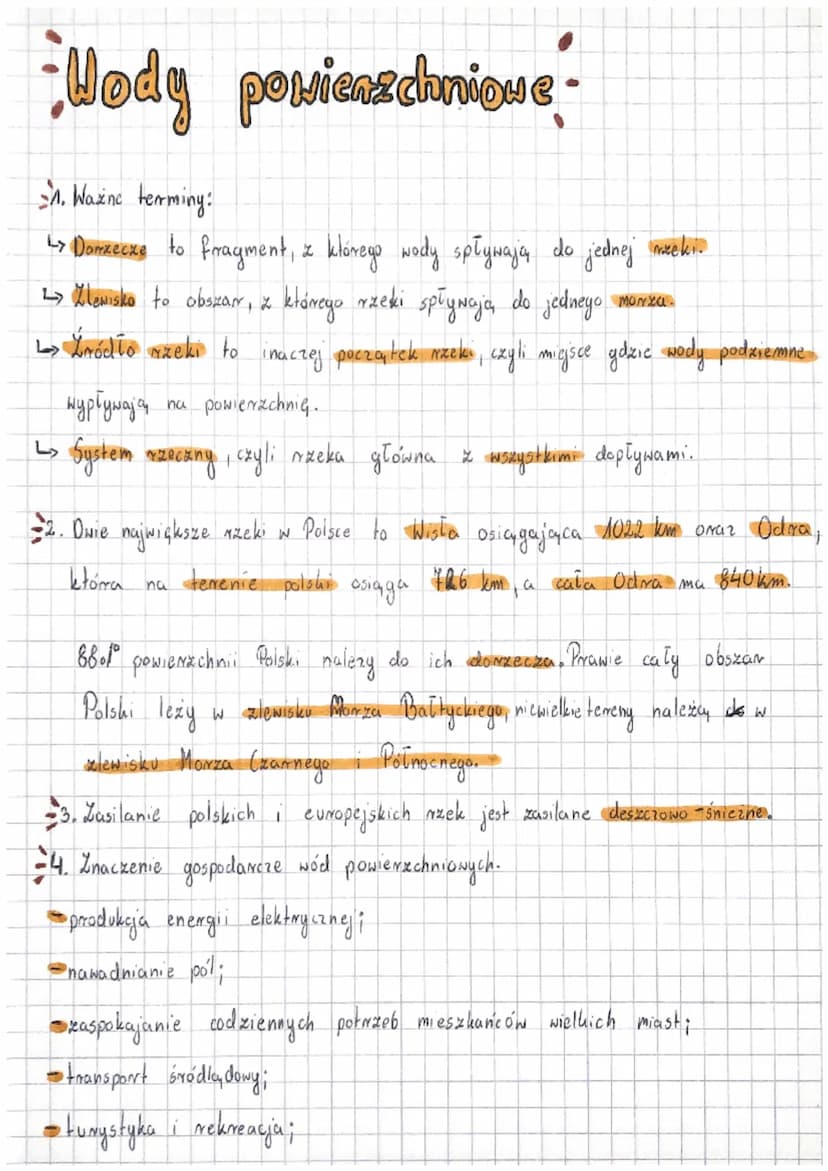 Wody powierzchniowe
1. Ważne terminy:
↳ Dorzecze to fragment, z którego wody spływają do jednej rzeki.
↳ Zlewisko to obszar, z którego rzeki spływają do jednego morza.
↳ Źródło rzeki to inaczej początek rzeki, czyli miejsce gdzie wody podziemne
wypływają na powierzchnię.
↳ System rzeczny, czyli rzeka główna z wszystkimi dopływami.
2. Dwie największe rzeki w Polsce to Wisła osiągająca 1022 km oraz Odra,
która na terenie polski osiąga 726 km, a cała Odra ma 840 km.
88% powierzchni Polski należy do ich dorzecza. Prawie cały obszar
Polski leży w zlewisku Morza Bałtyckiego, niewielkie tereny należą w
zlewisku Morza Czarnego i Północnego.
3. Zasilanie polskich i europejskich rzek jest zasilane deszczowo-śnieżne.
4. Znaczenie gospodarcze wód powierzchniowych.
- produkcja energii elektrycznej;
- nawadnianie pól;
- zaspokajanie codziennych potrzeb mieszkańców wielkich miast;
- transport śródlądowy;
- turystyka i rekreacja;